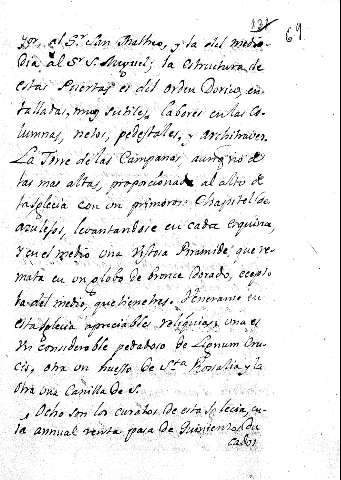 131 69
yor, al Sr. San Matheo, y la del medio
dia al Sr. S. Miguel; la estructura de
estas Puertas es del orden Dorico, en
talladas, muy sutiles, labores en las Co
lumnas, netos, pedestales, y architraves.
La Torre de las Campanas, aunq. no de
las mas altas, proporcionada al alto de
la Iglecia con un primoroso Chapitel de
azulejos, levantandose en cada esquina,
y en el medio una vistosa Piramide, que re
mata en un globo de bronce dorado, ecep
la del medio, que tiene tres. Veneranse en
esta Iglecia apreciables reliquias, una es
un considerable pedasoso de Lignum Cru
cis, otra un huesso de Sta. Rosalia, y la
otra una Canilla de S.
Ocho son los curatos de esta Iglecia, cu
ia annual renta pasa de Quinientos du
cados